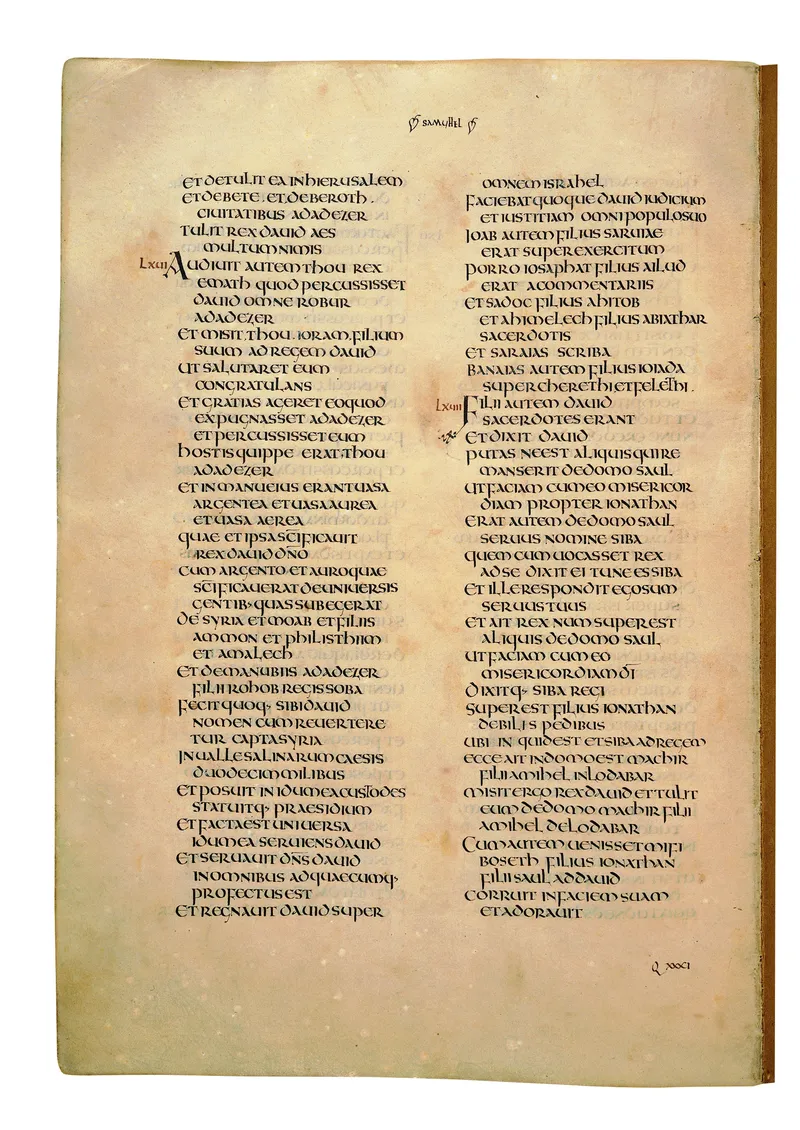 SAMUHEL
ET DETULIT EA IN HIERUSALEM
ET DE BETE. ET DE BEROTH.
CIUITATIBUS ADADEZER
TULIT REX DAUID AES
MULTUM NIMIS
LXIII AUDIUIT AUTEM THOU REX
EMATH QUOD PERCUSSISSET
DAUID OMNE ROBUR
ADADEZER
ET MISIT. THOU. IORAM. FILIUM
SUUM AD REGEM DAUID
UT SALUTARET EUM
CONGRATULANS
ET GRATIAS AGERET EO QUOD
EXPUGNASSET ADADEZER
ET PERCUSSISSET EUM
HOSTIS QUIPPE ERAT. THOU
ADADEZER
ET IN MANU EIUS ERANT UASA
ARGENTEA ET UASA AUREA
ET UASA AEREA
QUAE ET IPSA SC̄IFICAUIT
REX DAUID DN̄O
CUM ARGENTO ET AURO QUAE
SC̄IFICAUERAT DE UNIUERSIS
GENTIB· QUAS SUBEGERAT
DE SYRIA ET MOAB ET FILIIS
AMMON ET PHILISTHIIM
ET AMALECH
ET DE MANUBIIS ADADEZER
FILII ROHOB REGIS SOBA
FECIT QUOQ· SIBI DAUID
NOMEN CUM REUERTERE
TUR CAPTA SYRIA
IN UALLE SALINARUM CAESIS
DUODECIM MILIBUS
ET POSUIT IN IDUMEA CUSTODES
STATUITQ· PRAESIDIUM
ET FACTA EST UNIUERSA
IDUMEA SERUIENS DAUID
ET SERUAUIT DN̄S DAUID
IN OMNIBUS AD QUAECUMQ·
PROFECTUS EST
ET REGNAUIT DAUID SUPER
OMNEM ISRAHEL
FACIEBAT QUOQUE DAUID IUDICIUM
ET IUSTITIAM OMNI POPULO SUO
IOAB AUTEM FILIUS SARUIAE
ERAT SUPER EXERCITUM
PORRO IOSAPHAT FILIUS AILUD
ERAT A COMMENTARIIS
ET SADOC FILIUS AHITOB
ET AHIMELECH FILIUS ABIATHAR
SACERDOTIS
ET SARAIAS SCRIBA
BANAIAS AUTEM FILIUS IOIADA
SUPER CHERETHI ET FELETHI.
LXIIII FILII AUTEM DAUID
SACERDOTES ERANT
ET DIXIT DAUID
PUTAS NE EST ALIQUIS QUI RE
MANSERIT DE DOMO SAUL
UT FACIAM CUM EO MISERICOR
DIAM PROPTER IONATHAN
ERAT AUTEM DE DOMO SAUL
SERUUS NOMINE SIBA
QUEM CUM UOCASSET REX
AD SE DIXIT EI TU NE ES SIBA
ET ILLE RESPONDIT EGO SUM
SERUUS TUUS
ET AIT REX NUM SUPEREST
ALIQUIS DE DOMO SAUL
UT FACIAM CUM EO
MISERICORDIAM DI̅
DIXITQ· SIBA REGI
SUPEREST FILIUS IONATHAN
DEBILIS PEDIBUS
UBI INQUID EST ET SIBA AD REGEM
ECCE AIT IN DOMO EST MACHIR
FILII AMIHEL IN LODABAR
MISIT ERGO REX DAUID ET TULIT
EUM DE DOMO MACHIR FILII
AMIHEL DE LODABAR
CUM AUTEM UENISSET MIFI
BOSETH FILIUS IONATHAN
FILII SAUL AD DAUID
CORRUIT IN FACIEM SUAM
ET ADORAUIT
Q XXXI